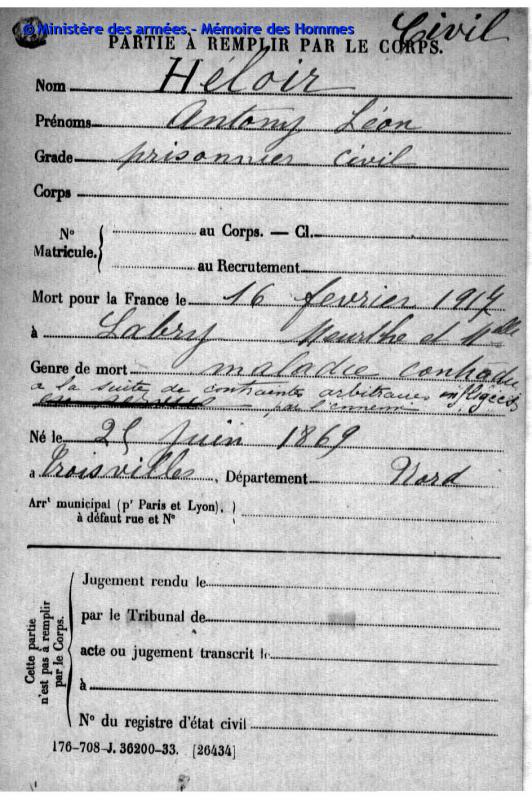 © Ministère des armées - Mémoire des Hommes
Civil
PARTIE À REMPLIR PAR LE CORPS.
Nom Héloir
Prénoms Antony Léon
Grade prisonnier civil
Corps
N° Matricule. au Corps. — Cl.
au Recrutement
Mort pour la France le 16 fevrier 1917
à Labry Meurthe et Mlle
Genre de mort maladie contractée
a la suite de contraintes arbitraires infligées
en service par l'ennemi
Né le 25 Juin 1869
à Troisvilles, Département Nord
Arrt municipal (pr Paris et Lyon),
à défaut rue et N°
Cette partie
n'est pas à remplir
par le Corps.
Jugement rendu le
par le Tribunal de
acte ou jugement transcrit le
à
N° du registre d'état civil
176-708-J. 36200-33. [26434]